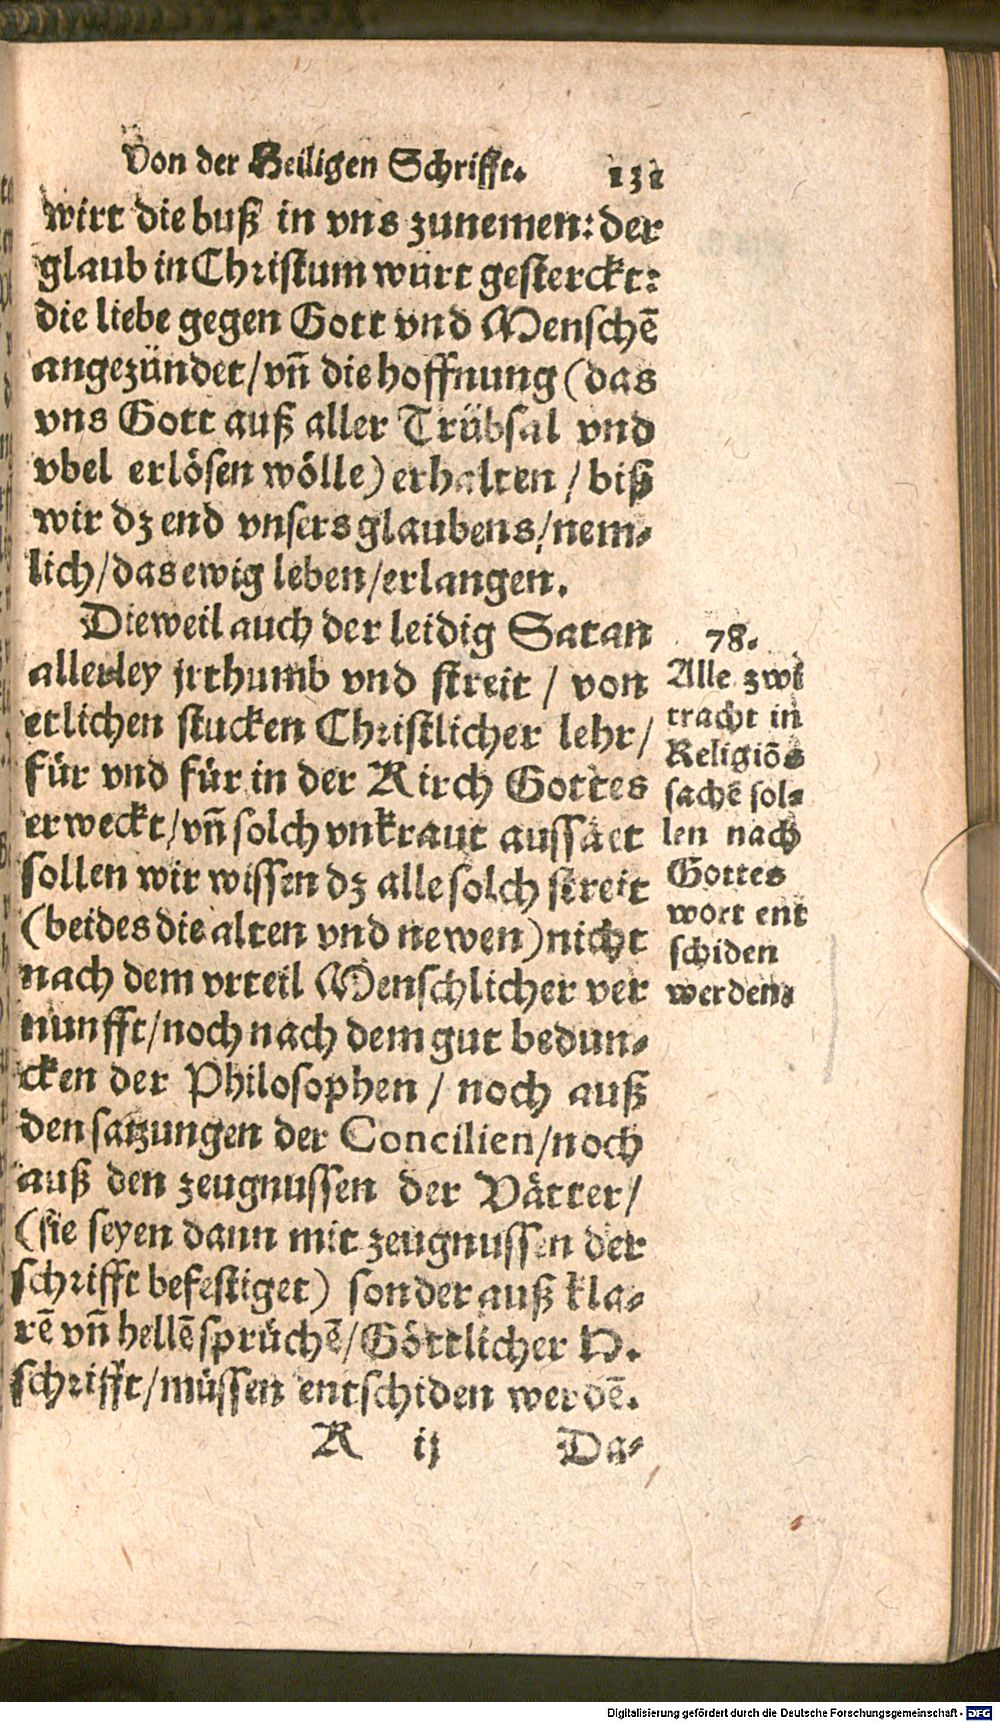 Von der Heiligen Schrifft. 131
wirt die buß in vns zunemen: der
glaub in Christum würt gesterckt:
die liebe gegen Gott vnd Menschē
angezündet/ vn̄ die hoffnung (das
vns Gott auß aller Trübsal vnd
vbel erlösen wölle) erhalten / biß
wir dz end vnsers glaubens/ nem⸗
lich/ das ewig leben/ erlangen.
Dieweil auch der leidig Satan
allerley jrthumb vnd streit / von
etlichen stucken Christlicher lehr/
für vnd für in der Kirch Gottes
erweckt/ vn̄ solch vnkraut aussäet
sollen wir wissen dz alle solch streit
(beides die alten vnd newen) nicht
nach dem vrteil Menschlicher ver
nunfft/ noch nach dem gut bedun⸗
cken der Philosophen / noch auß
den satzungen der Concilien/ noch
auß den zeugnussen der Vätter/
(sie seyen dann mit zeugnussen der
schrifft befestiget) sonder auß kla⸗
rē vn̄ hellē sprüchē/ Göttlicher H.
schrifft/ müssen entschiden werdē.
78.
Alle zwi
tracht in
Religiōs
sachē sol⸗
len nach
Gottes
wort ent
schiden
werden.
R ij Da⸗
Digitalisierung gefördert durch die Deutsche Forschungsgemeinschaft - DFG